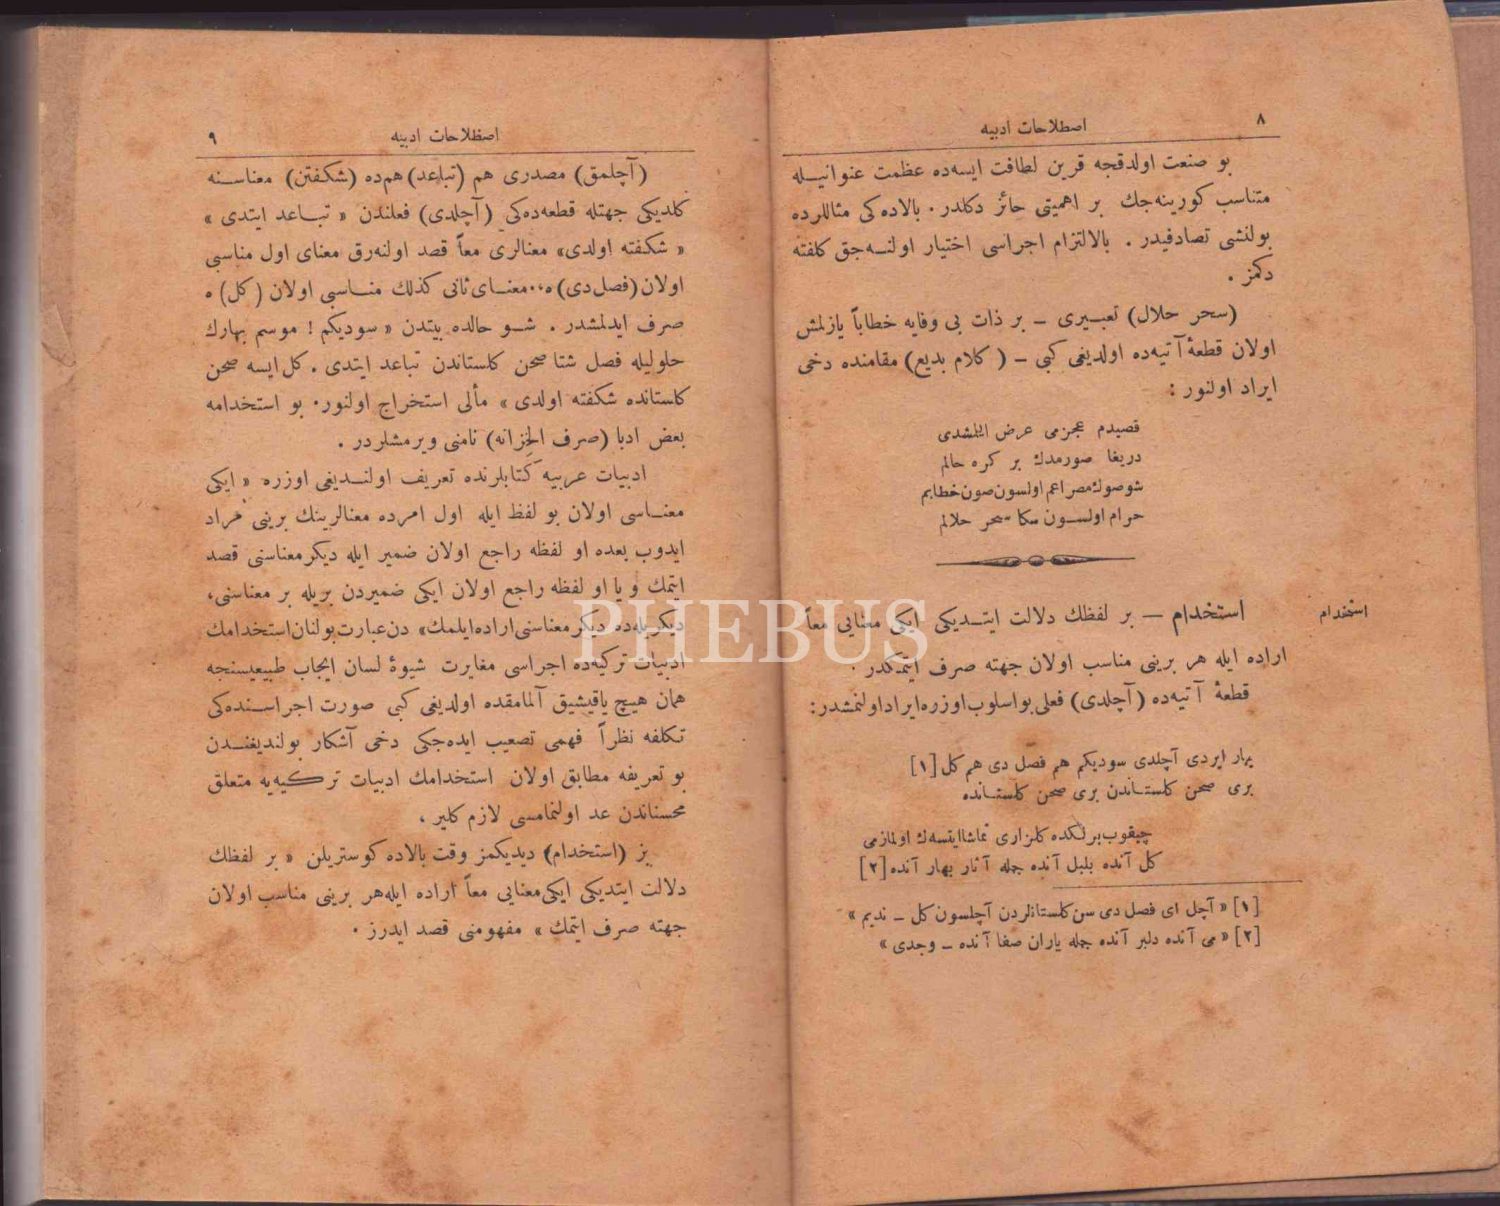 ٨
اصطلاحات ادبيه
بو صنعت اولدقجه قرين لطافت ايسه‌ده عظمت عنوانيـله
متناسب كورينه‌جك بر اهميتى حائز دكلدر. بالاده‌كى مثاللرده
بولنشى تصادفيدر. بالالتزام اجراسى اختيار اولنـه‌جق كلفته
دكمز.
(سحر حلال) تعبـيرى ــ بر ذات بى وفايه خطاباً يازلمش
اولان قطعهٔ آتيه‌ده اولديغى كبى ــ (كلام بديع) مقامنده دخى
ايراد اولنور:
قصيدم عجزمى عرض ايلمشدى
دريغا صورمدك بر كره حالم
شو صوك مصراعم اولسون صون خطابم
حرام اولسـون سكا سحر حلالم
استخدام
استخدام ــ بر لفظك دلالت ايتـديكى ايكى معنايى معاً
اراده ايله هر برينى مناسب اولان جهته صرف ايتمكدر.
قطعهٔ آتيه‌ده (آچلدى) فعلى بو اسلوب اوزره ايراد اولنمشدر:
بهار ايردى آچلدى سوديكم هم فصل دى هم كل [١]
برى صحن كلستـاندن برى صحن كلستـانده
چيقوب بر لكده كلزارى تماشا ايتسه‌ك اولمازمى
كل آنده بلبل آنده جمله آثار بهار آنده [٢]
[١] « آچل اى فصل دى سن كلستانلردن آچلسون كل ــ نديم »
[٢] « مى آنده دلبر آنده جمله ياران صفا آنده ــ وجدى »
اصطلاحات ادبيه
٩
(آچلمق) مصدرى هم (تباعد) هم‌ده (شكفتن) معناسـنه
كلديكى جهتله قطعه‌ده‌كى (آچلدى) فعلندن « تبـاعد ايتدى »
« شكفته اولدى » معنالرى معاً قصد اولنه‌رق معناى اول مناسبى
اولان (فصل دى) ه، معنـاى ثانى كذلك منـاسبى اولان (كل) ه
صرف ايدلمشدر. شـو حالده بيتدن « سوديكم! موسم بهارك
حلوليله فصل شتا صحن كلستاندن تباعد ايتدى. كل ايسه صحن
كلستانده شكفته اولدى » مآلى استخراج اولنور. بو استخدامه
بعض ادبا (صرف الخزانه) نامنى ويرمشلردر.
ادبيات عربيه كتابلرنده تعريف اولنـديغى اوزره « ايكى
معنـاسى اولان بو لفظ ايله اول امرده معنالرينك برينى مراد
ايدوب بعده او لفظه راجع اولان ضمير ايله ديكر معناسنى قصد
ايتمك و يا او لفظه راجع اولان ايكى ضميردن بريله بر معناسنى،
ديكريله‌ده ديكر معناسنى اراده ايلمك » دن عبارت بولنان استخدامك
ادبيات تركيه‌ده اجراسى مغايرت شيوهٔ لسان ايجاب طبيعيسنجه
همان هيچ ياقيشيق آلمامقده اولديغى كبى صورت اجراسـنده‌كى
تكلفه نظراً فهمى تصعيب ايده‌جكى دخى آشكار بولنديغنـدن
بو تعريفه مطابق اولان استخدامك ادبيات تركيه‌يه متعلق
محسناتدن عد اولنمامسى لازم كلير.
بز (استخدام) ديديكمز وقت بالاده كوستريلن « بر لفظك
دلالت ايتديكى ايكى معنايى معاً اراده ايله هر برينى مناسب اولان
جهته صرف ايتمك » مفهومنى قصد ايدرز.
PHEBUS